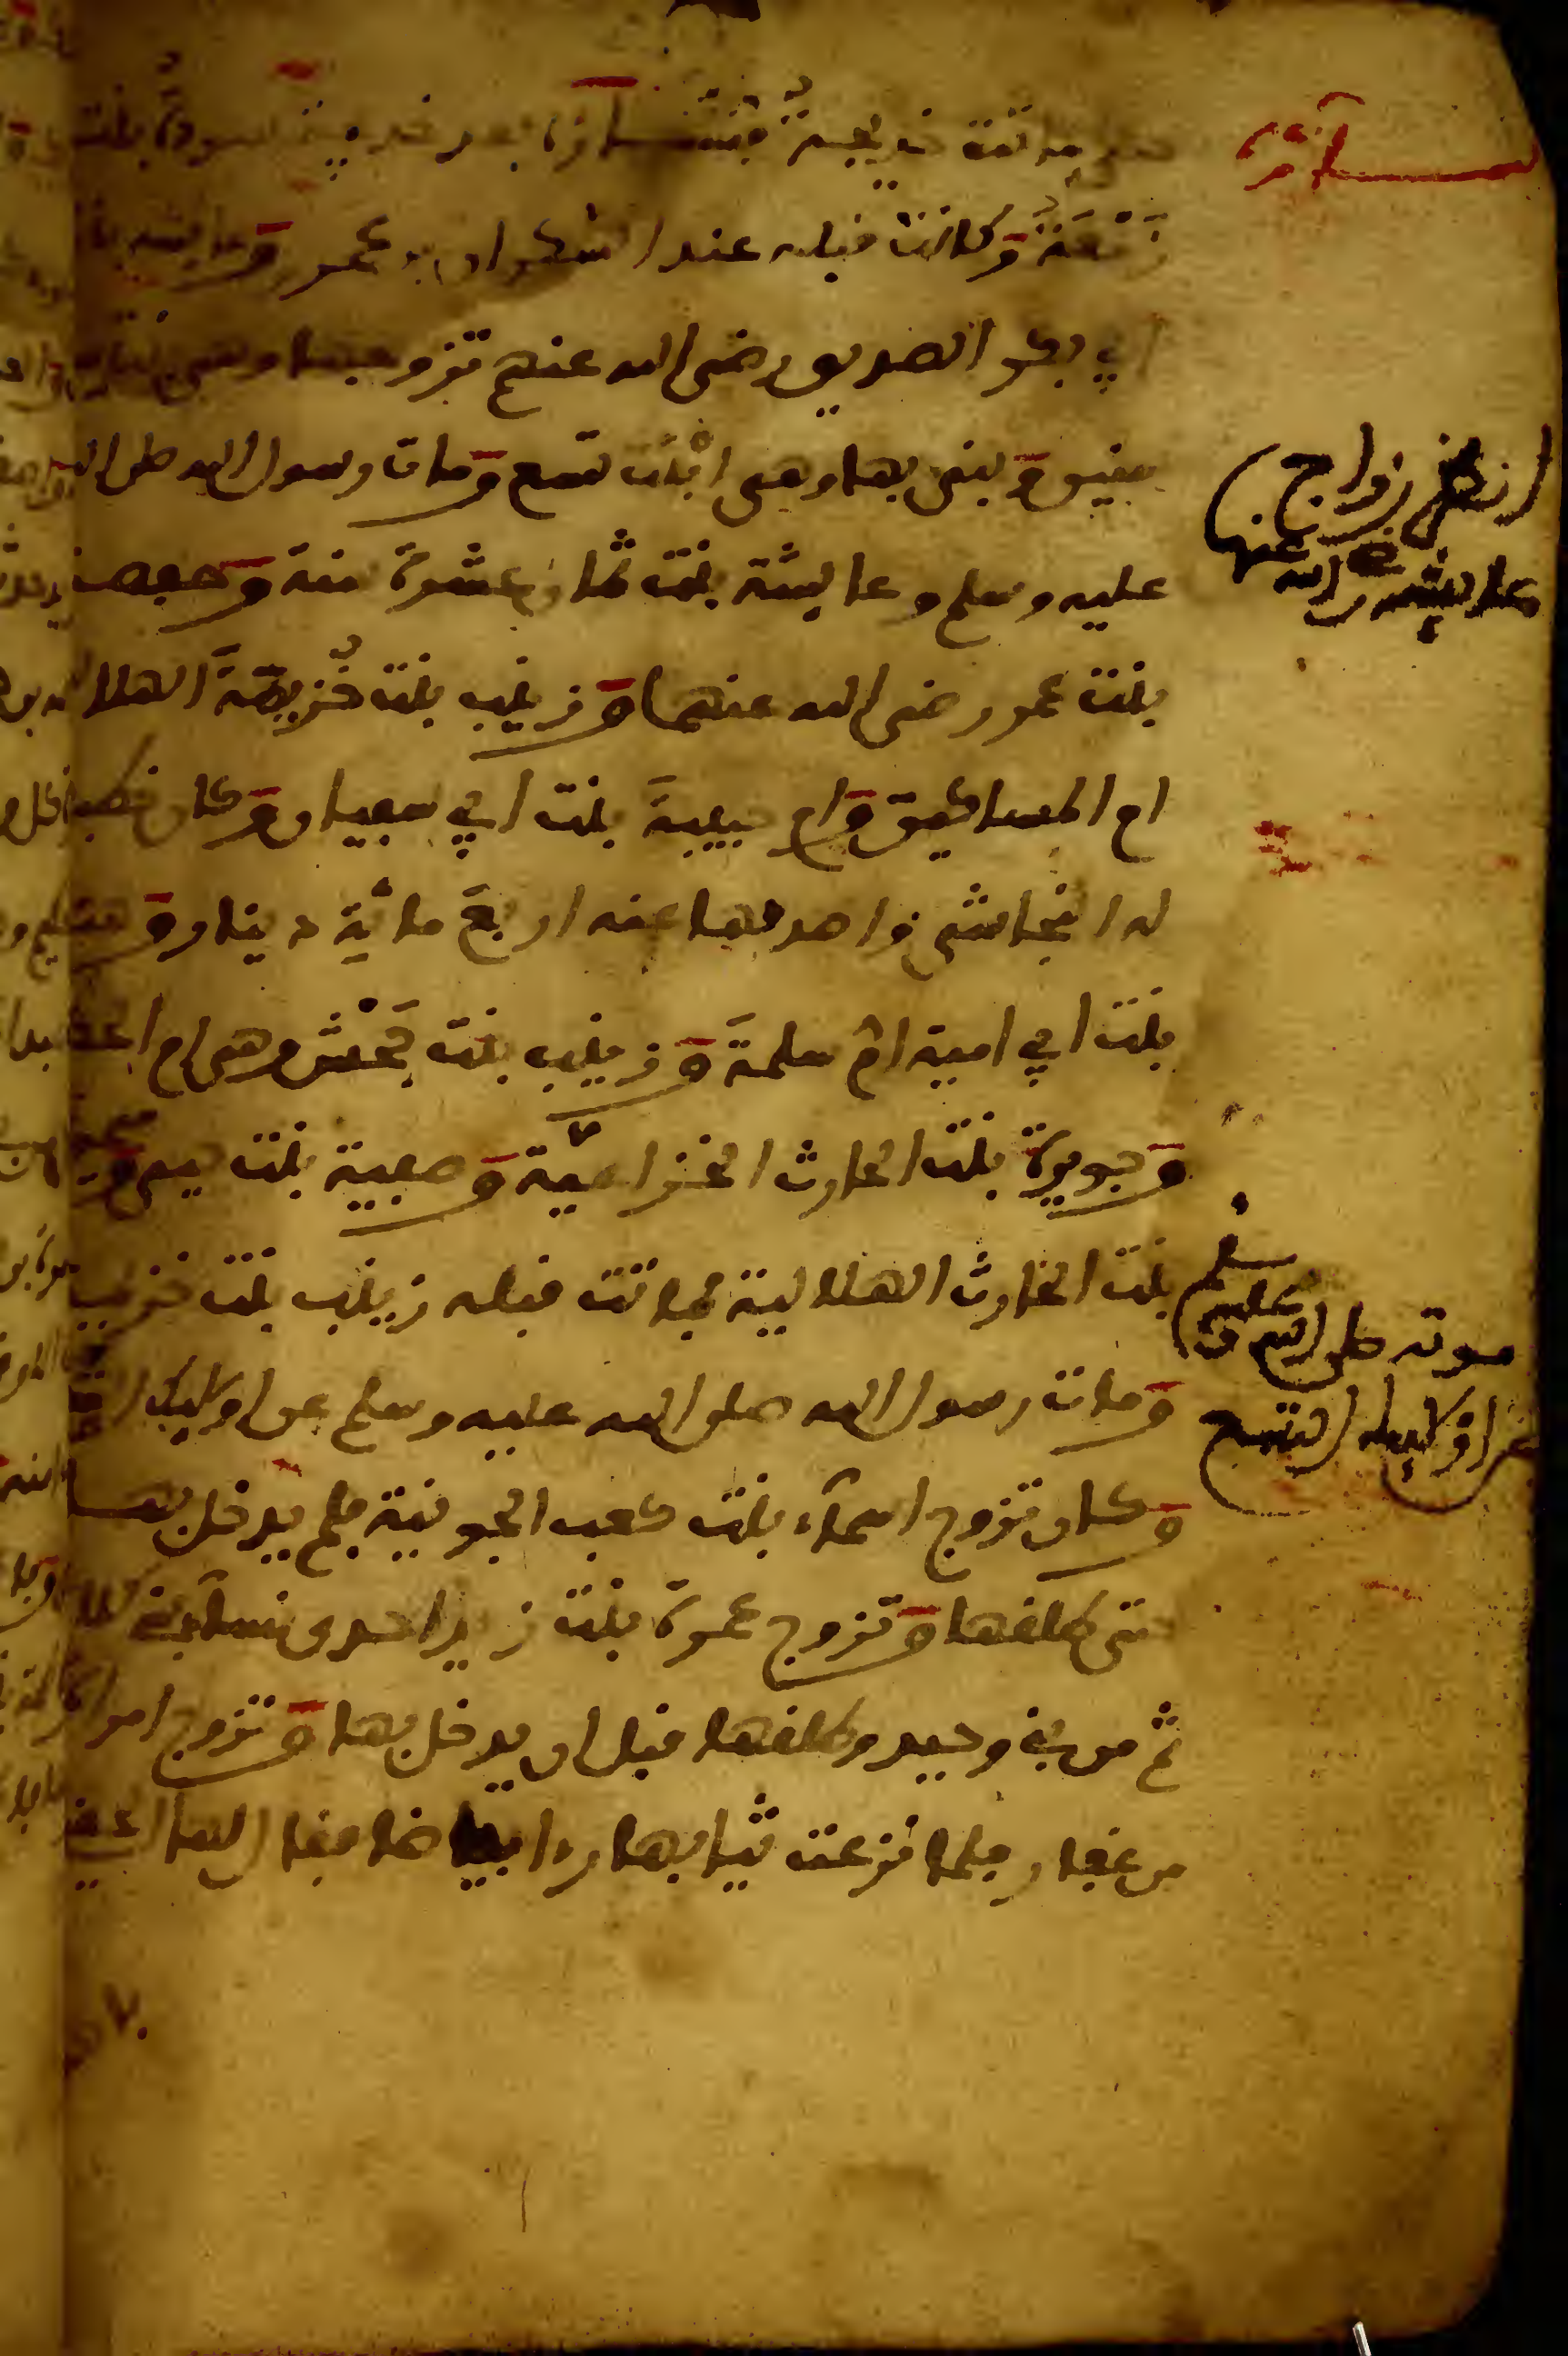 خديجة بعد خديجة سودة بنت
زمعة وكانت قبله عند السكران بن عمرو وعايشة بنت
ابي بكر الصديق رضي الله عنهم تزوجها وهي بنت
سنين وبنى بها وهي ابنت تسع ومات رسول الله صلى الله
عليه وسلم وعايشة بنت ثمان عشرة سنة وحفصة
بنت عمر رضي الله عنهما وزينب بنت خزيمة الهلالية
ام المساكين وام حبيبة بنت ابي سفيان وكان خطبها
له النجاشي واصدقها عنه اربع مائة دينار وهند
بنت ابي امية ام سلمة وزينب بنت جحش وهي ام الحكم
وجويرة بنت الحارث الخزاعية وصفية بنت حيي و
بنت الحارث الهلالية فماتت قبله زينب بنت خزيمة
ومات رسول الله صلى الله عليه وسلم عن اوليك
وكان تزوج اسماء بنت كعب الجونية فلم يدخل بها
حتى طلقها وتزوج عمرة بنت زيد احدى نساء بني كلاب
ثم من بني وحيد وطلقها قبل ان يدخل بها وتزوج امراة
من غفار فلما نزعت ثيابها راى بياضا فقال لها الحقي
نساؤه
انظر زواج
عايشة رضي الله عنها
موته صلى الله عليه وسلم
عن اوليك التسع